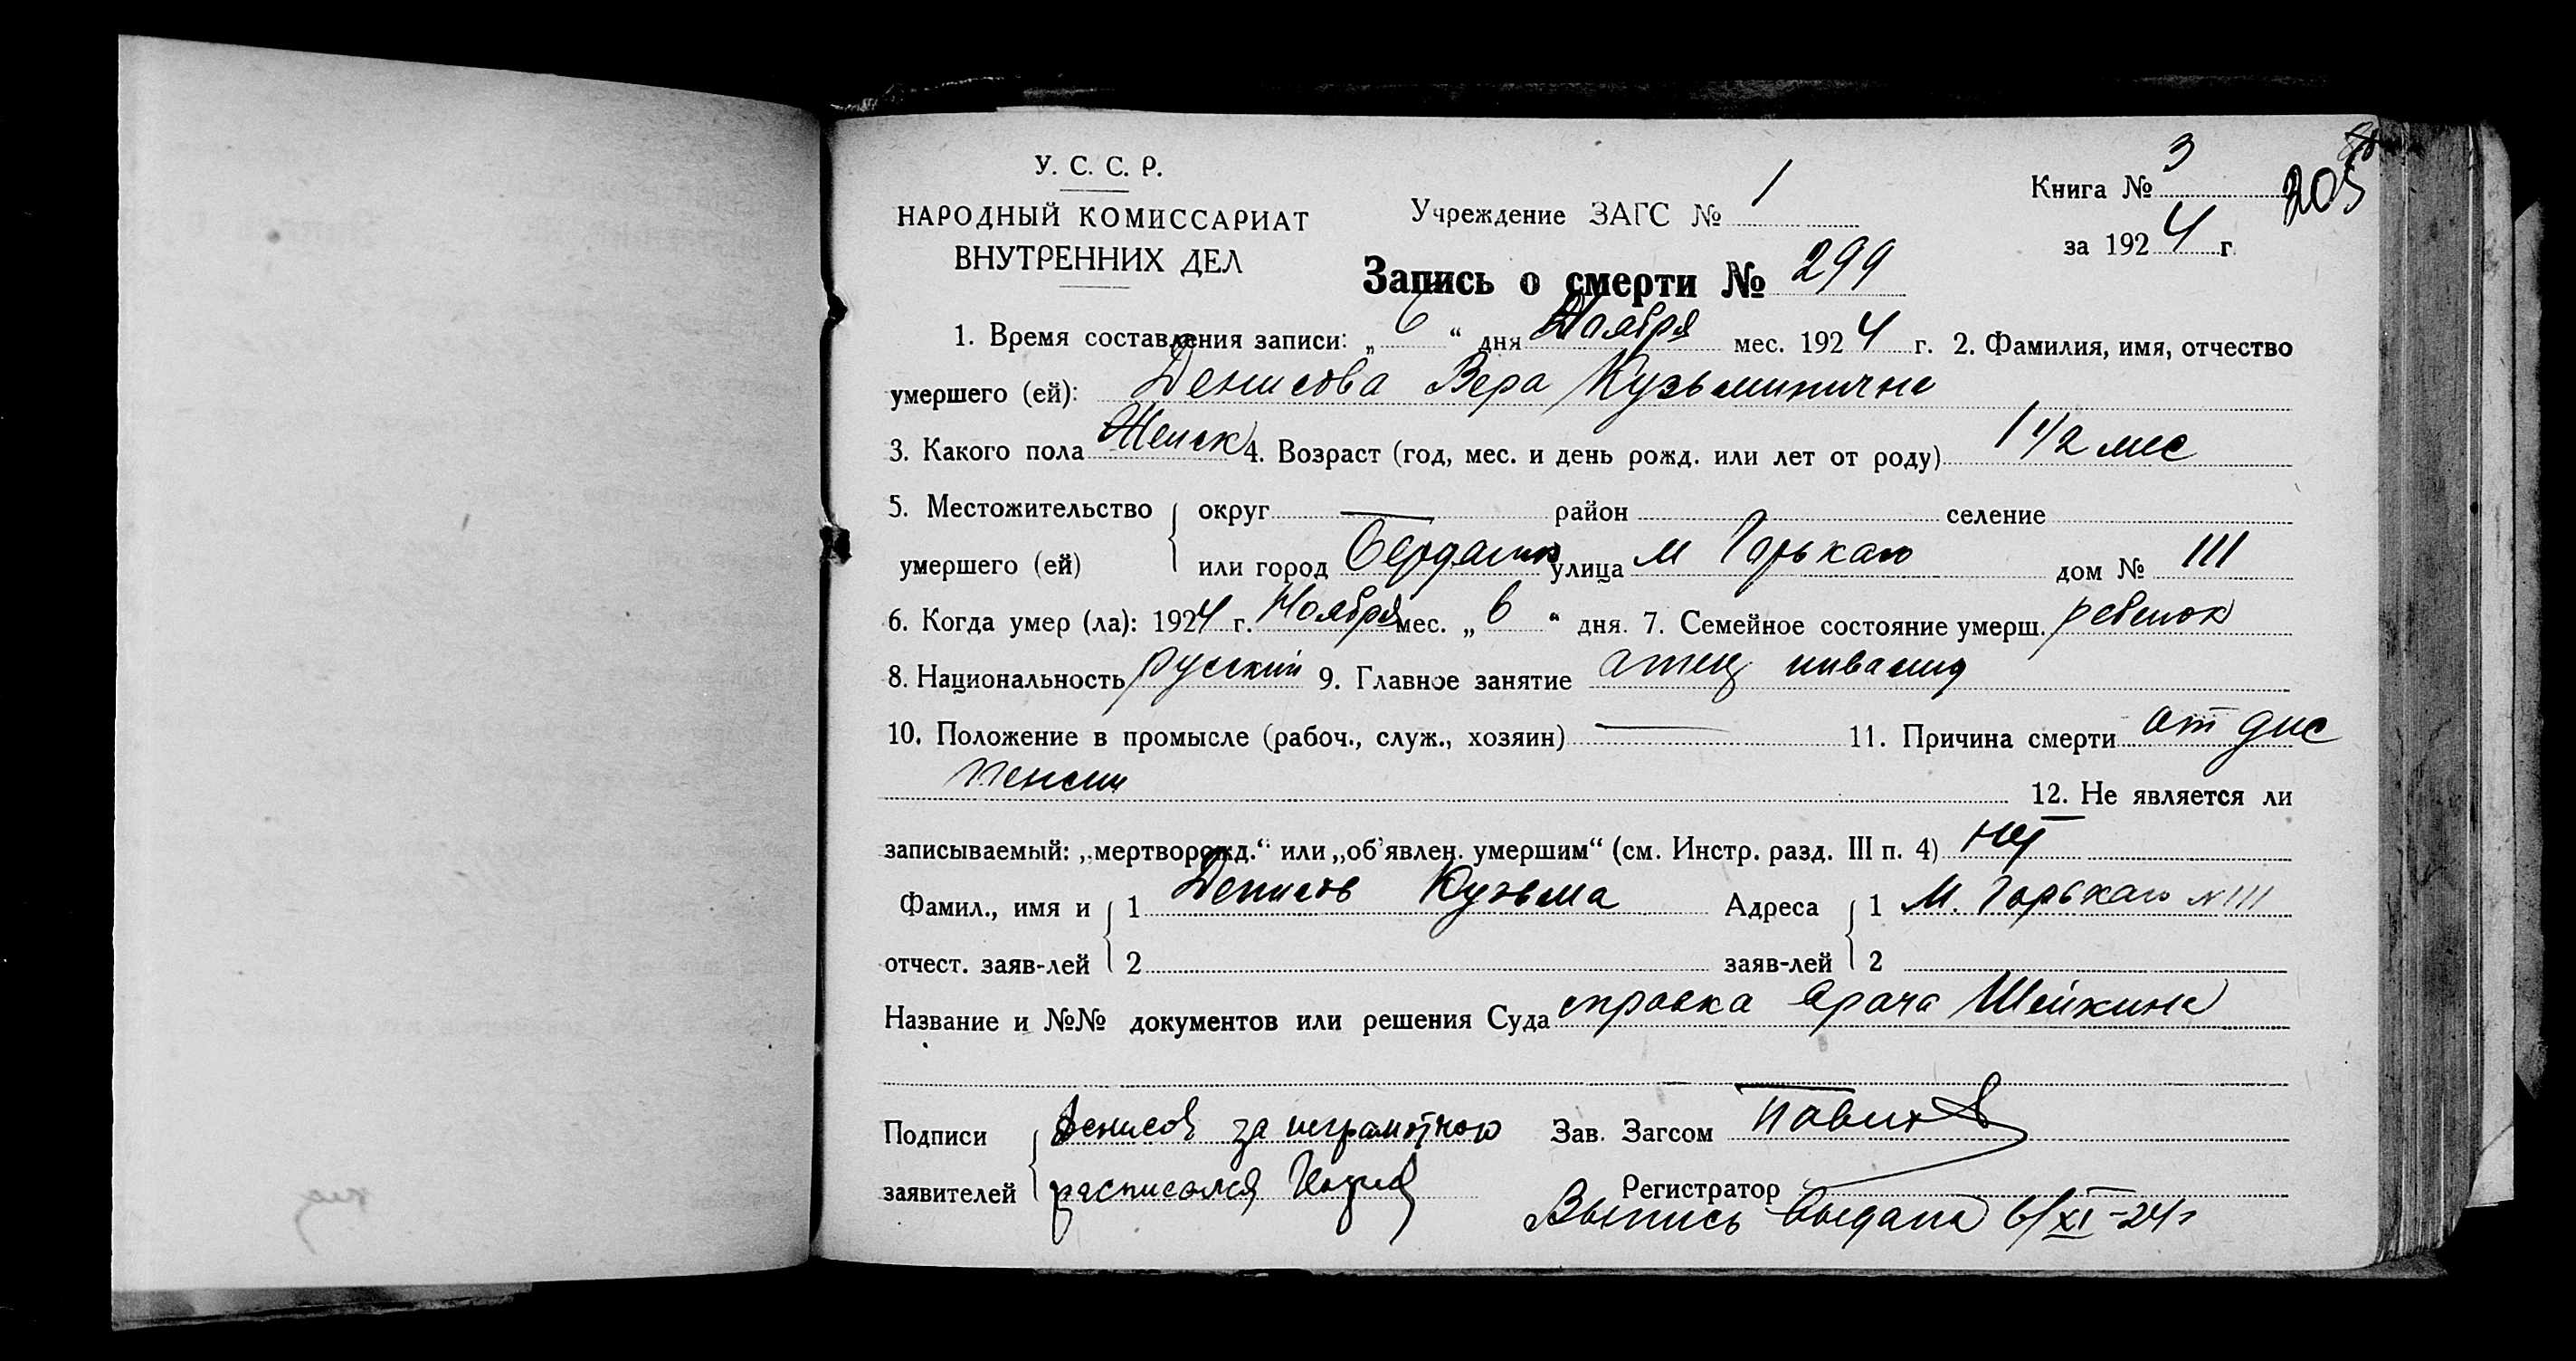 У. С. С. Р.
НАРОДНЫЙ КОМИССАРИАТ
ВНУТРЕННИХ ДЕЛ
Учреждение ЗАГС № 1
Книга № 3
205
за 1924 г.
Запись о смерти № 299
1. Время составления записи: „ 6 “ дня Ноября мес. 1924 г. 2. Фамилия, имя, отчество
умершего (ей): Денисова Вера Кузьминична
3. Какого пола Женск 4. Возраст (год, мес. и день рожд. или лет от роду) 1 1/2 мес
5. Местожительство округ — район селение
умершего (ей) или город улица М Горькаго дом № 111
6. Когда умер (ла): 1924 г. Ноября мес. „ 6 “ дня. 7. Семейное состояние умерш. ребенок
8. Национальность русский 9. Главное занятие отец инвалид
10. Положение в промысле (рабоч., служ., хозяин) — 11. Причина смерти от дис
пенсии 12. Не является ли
записываемый: „мертворожд.“ или „об'явлен. умершим“ (см. Инстр. разд. III п. 4) нет
Фамил., имя и 1 Денисов Кузьма Адреса 1 М. Горькаго № 111
отчест. заяв-лей 2 заяв-лей 2
Название и №№ документов или решения Суда справка врача Шейкина
Подписи Денисов за неграмотного Зав. Загсом
заявителей расписался Регистратор
Выпись выдана 6/XI-24г